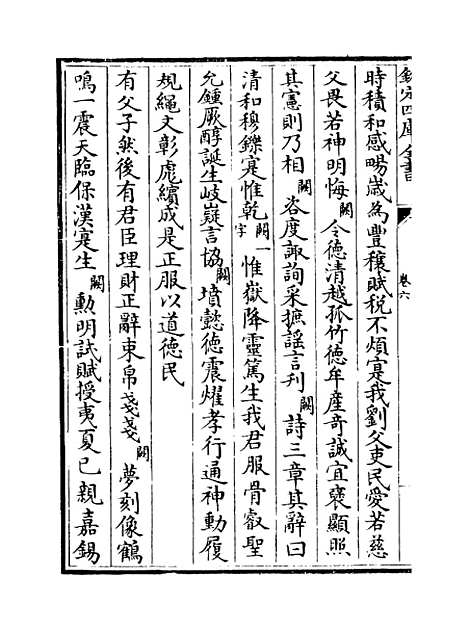 欽定四庫全書
卷六
時積和感暘歲為豐穰賦稅不煩寔我劉父吏民愛若慈
父畏若神明悔闕令德清越孤竹德牟產奇誠宜襃顯照
其憲則乃相闕咨度諏詢采摭謡言刋闕詩三章其辭曰
清和穆鑠寔惟乾闕一字惟嶽降靈篤生我君服骨叡聖
允鍾厥醇誕生岐嶷言協闕墳懿德震燿孝行通神動履
規繩文彰彪繢成是正服以道德民
有父子然後有君臣理財正辭束帛戔戔闕夢刻像鶴
鳴一震天臨保漢寔生闕勲明試賦授夷夏已親嘉錫